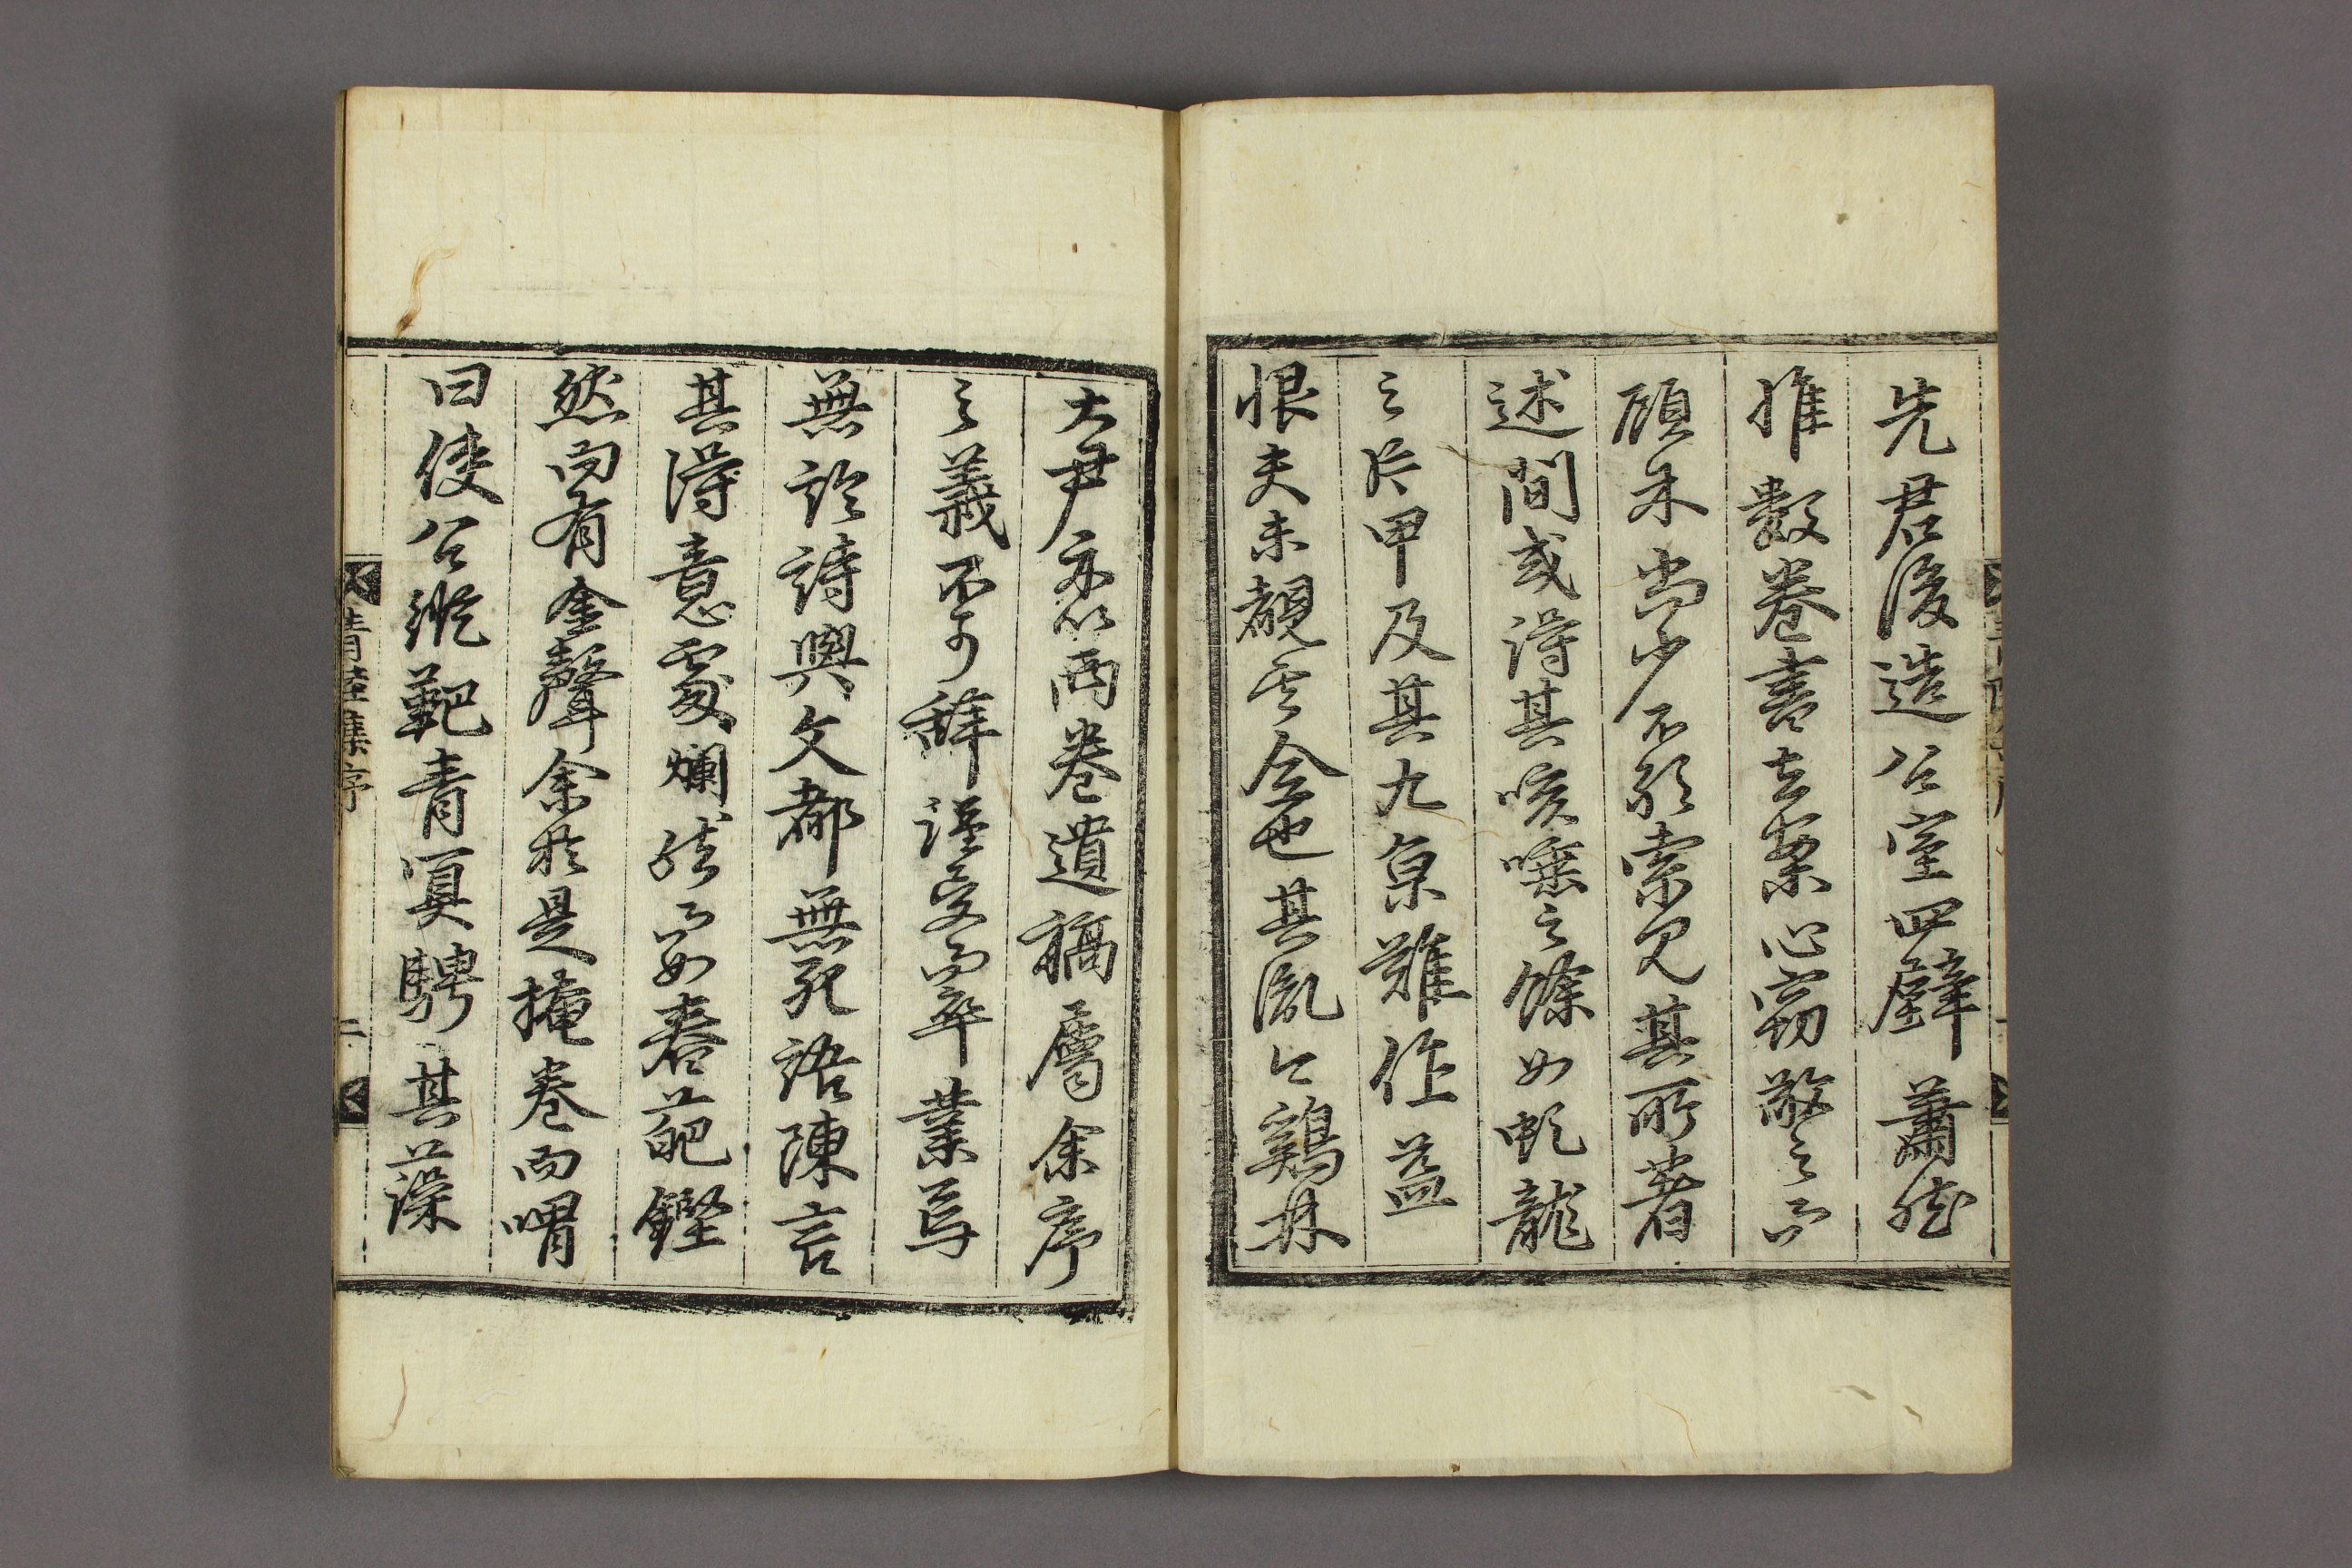 先君後造公室四壁蕭然
惟數卷書在案心竊敬之而
顧未嘗少不能索見其所著
述間或得其咳唾之餘如虬龍
之片甲及其九泉難作益
恨夫未覩其全也其胤今鷄林
大尹示以兩卷遺稿屬余序
之義不可辭謹受而卒業焉
無論詩與文都無死語陳言
其得意處爛然而如春葩鏗
然而有金聲余於是掩卷而喟
曰使公縱靶青冥騁其藻
青陸集序 二